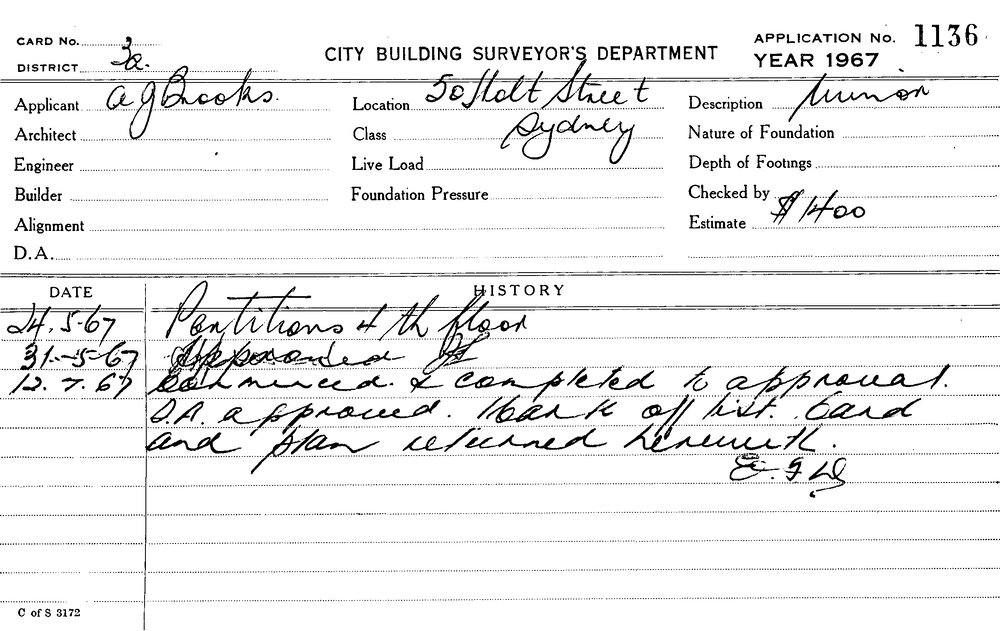 CARD No.
DISTRICT 3a.
CITY BUILDING SURVEYOR'S DEPARTMENT
APPLICATION No. 1136
YEAR 1967
Applicant A G Brooks.
Location 50 Holt Street
Description Minor
Architect
Class Sydney
Nature of Foundation
Engineer
Live Load
Depth of Footings
Builder
Foundation Pressure
Checked by
Alignment
Estimate $1400
D.A.
DATE HISTORY
24.5.67 Partitions 4th floor
31.5.67 Approved
12.7.67 Commenced & completed to approval.
D.A. approved. Mark off list. Card
and plan returned herewith.
C of S 3172